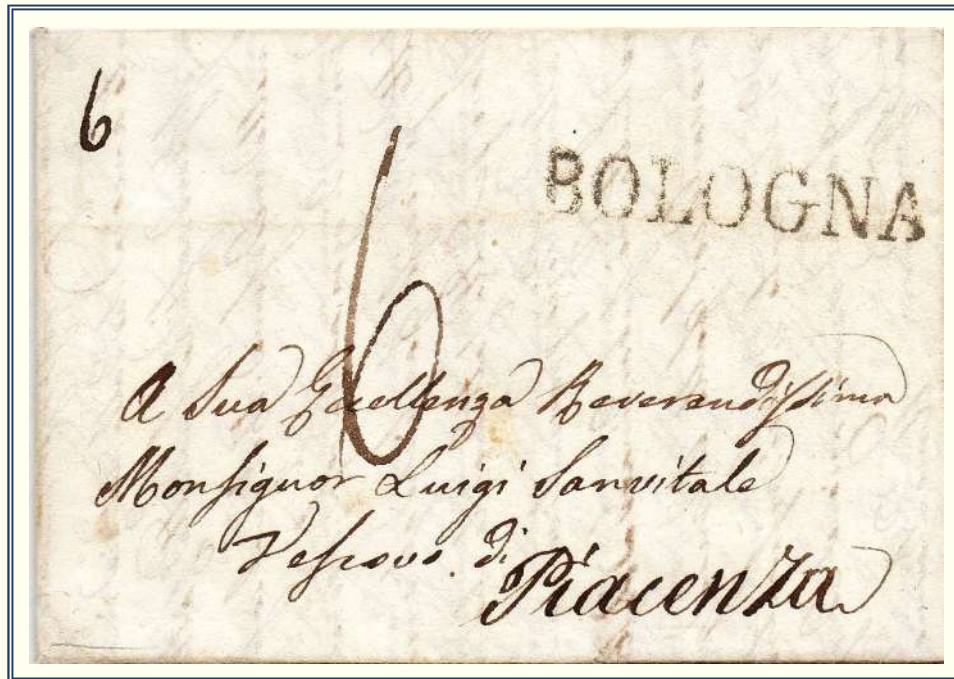 6
BOLOGNA
6
A Sua Eccellenza Reverendissima
Monsignor Luigi Sanvitale
Vescovo di
Piacenza